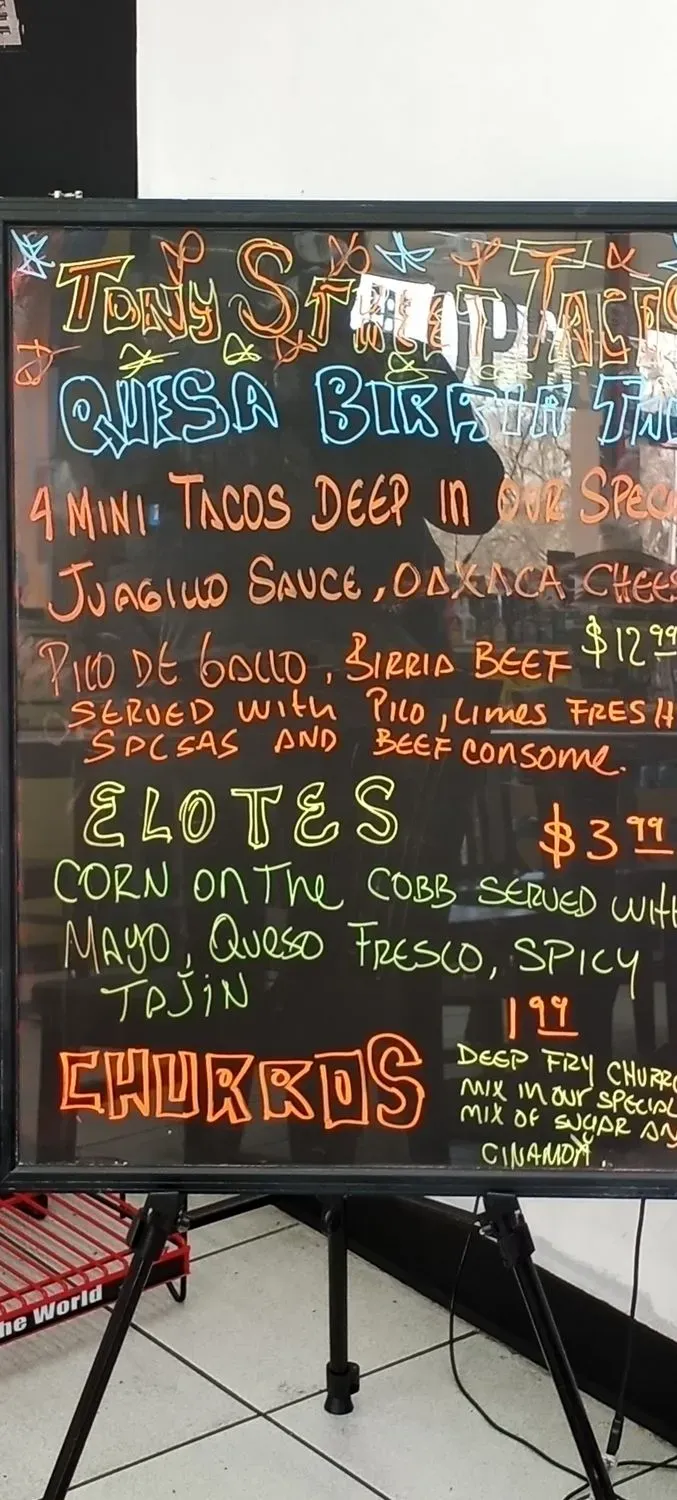 TONY STREET TACOS
QUESA BIRRIA TA
4 MINI TACOS DEEP IN OUR SPEC
JUAGILLO SAUCE, OAXACA CHEES
PICO DE GALLO, BIRRIA BEEF $12.99
SERVED WITH PICO, LIMES FRESH
SPCSAS AND BEEF CONSOME.
ELOTES
$3.99
CORN ON THE COBB SERVED WITH
MAYO, QUESO FRESCO, SPICY
TAJIN
1.99
CHURROS
DEEP FRY CHURRO
MIX IN OUR SPECIAL
MIX OF SUGAR AN
CINAMON
he World